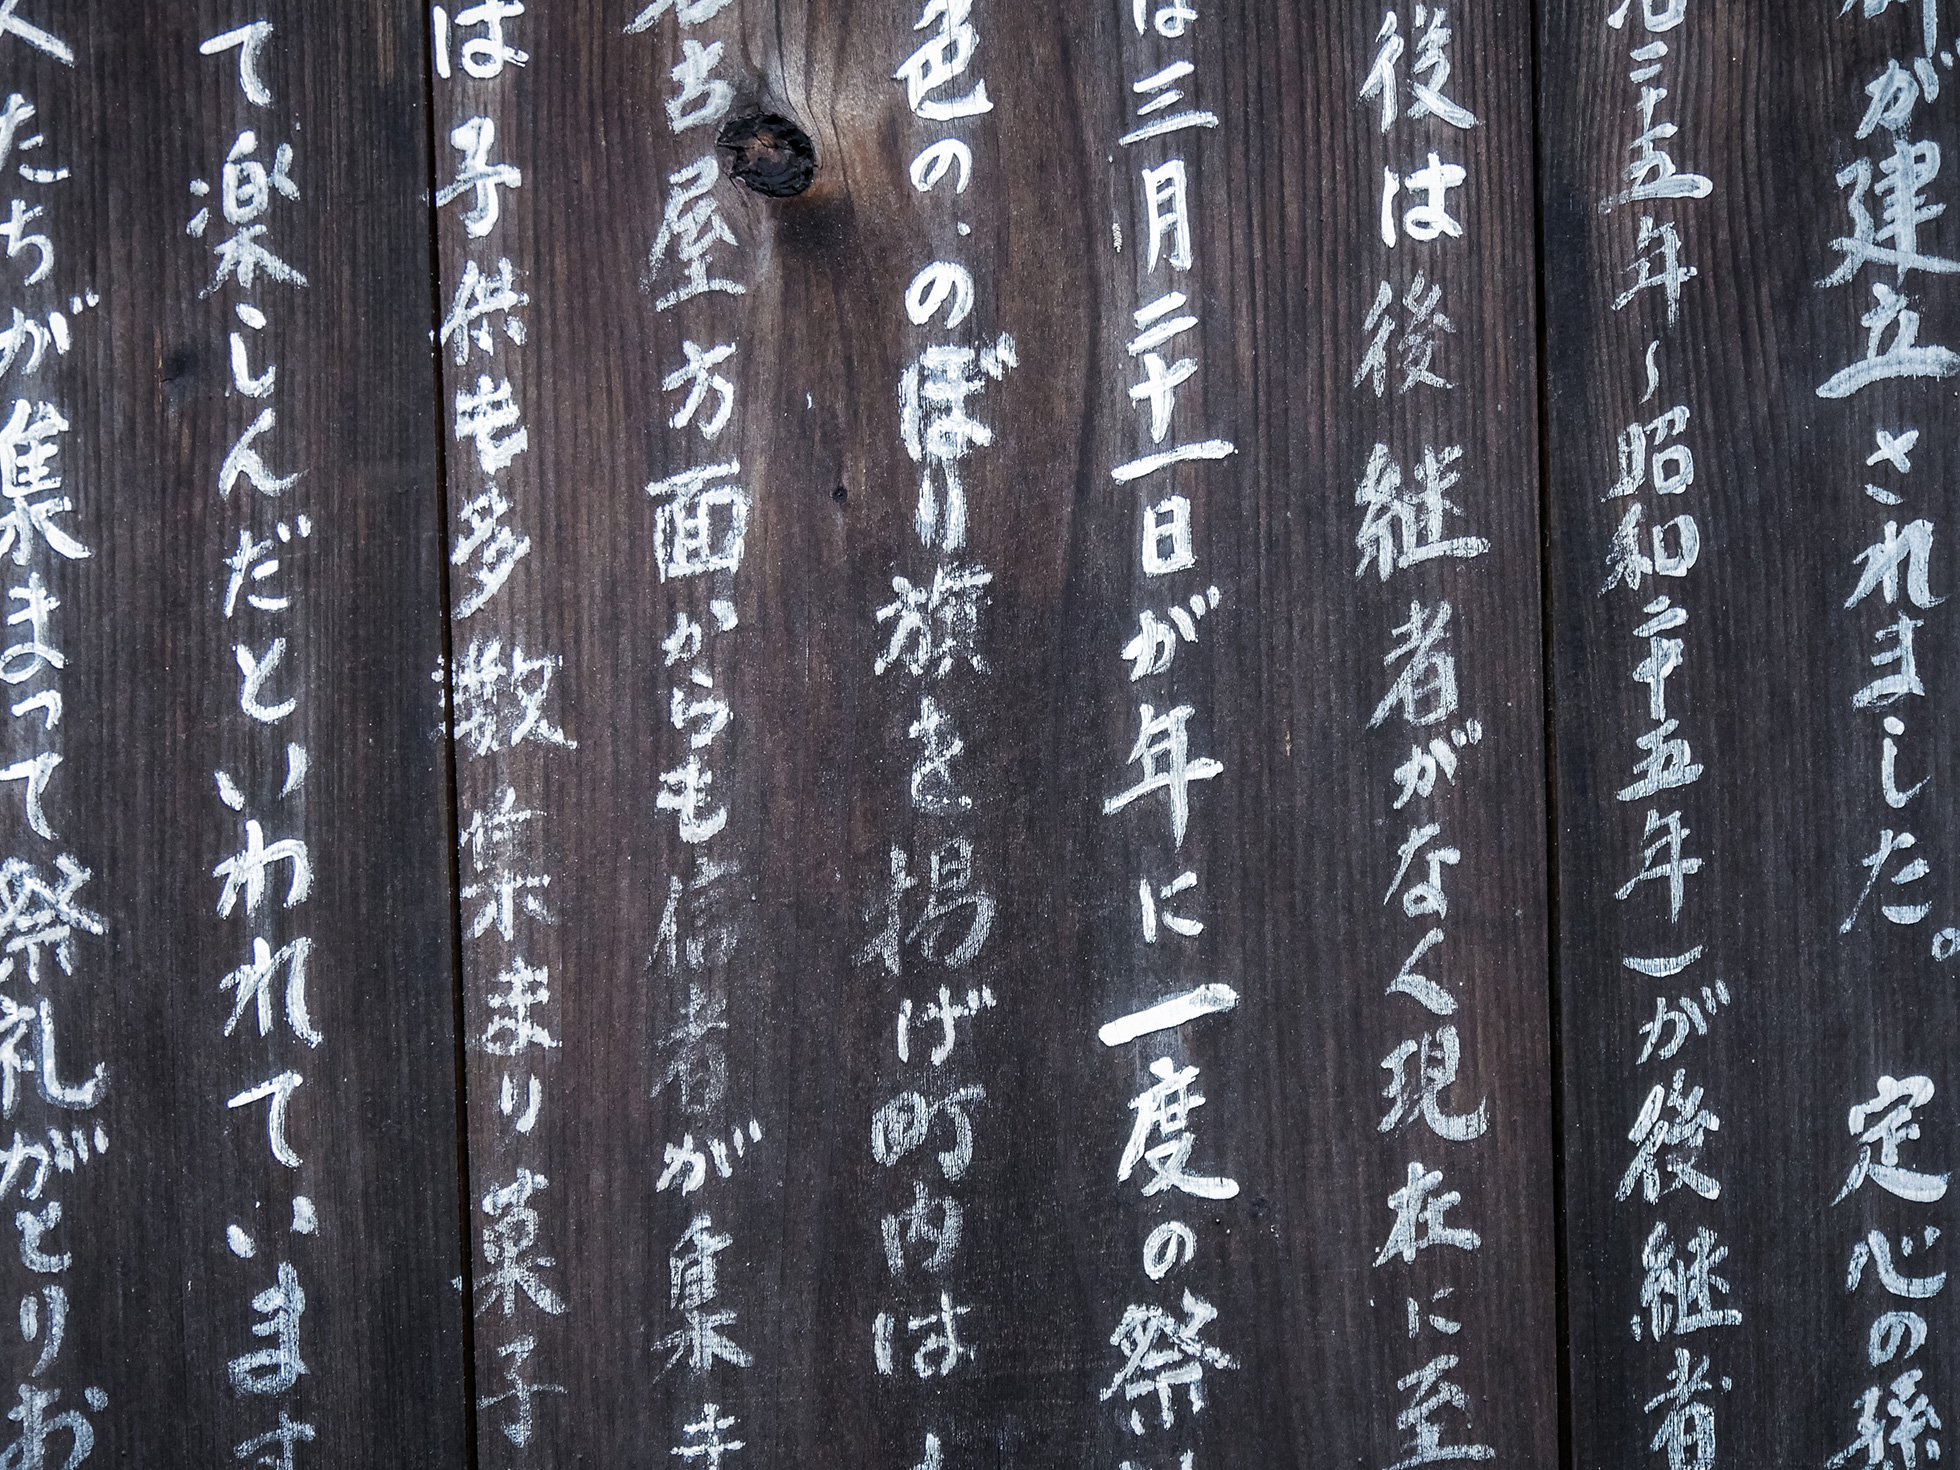 が建立されました。　定心の孫
治二十五年〜昭和二十五年)が後継者
後は後継者がなく現在に至
は三月二十一日が年に一度の祭
色の.のぼり旗を揚げ町内は
名古屋方面からも信者が集
は子供も多数集まり菓子
て楽しんだといわれています
人たちが集まって祭礼がとりお